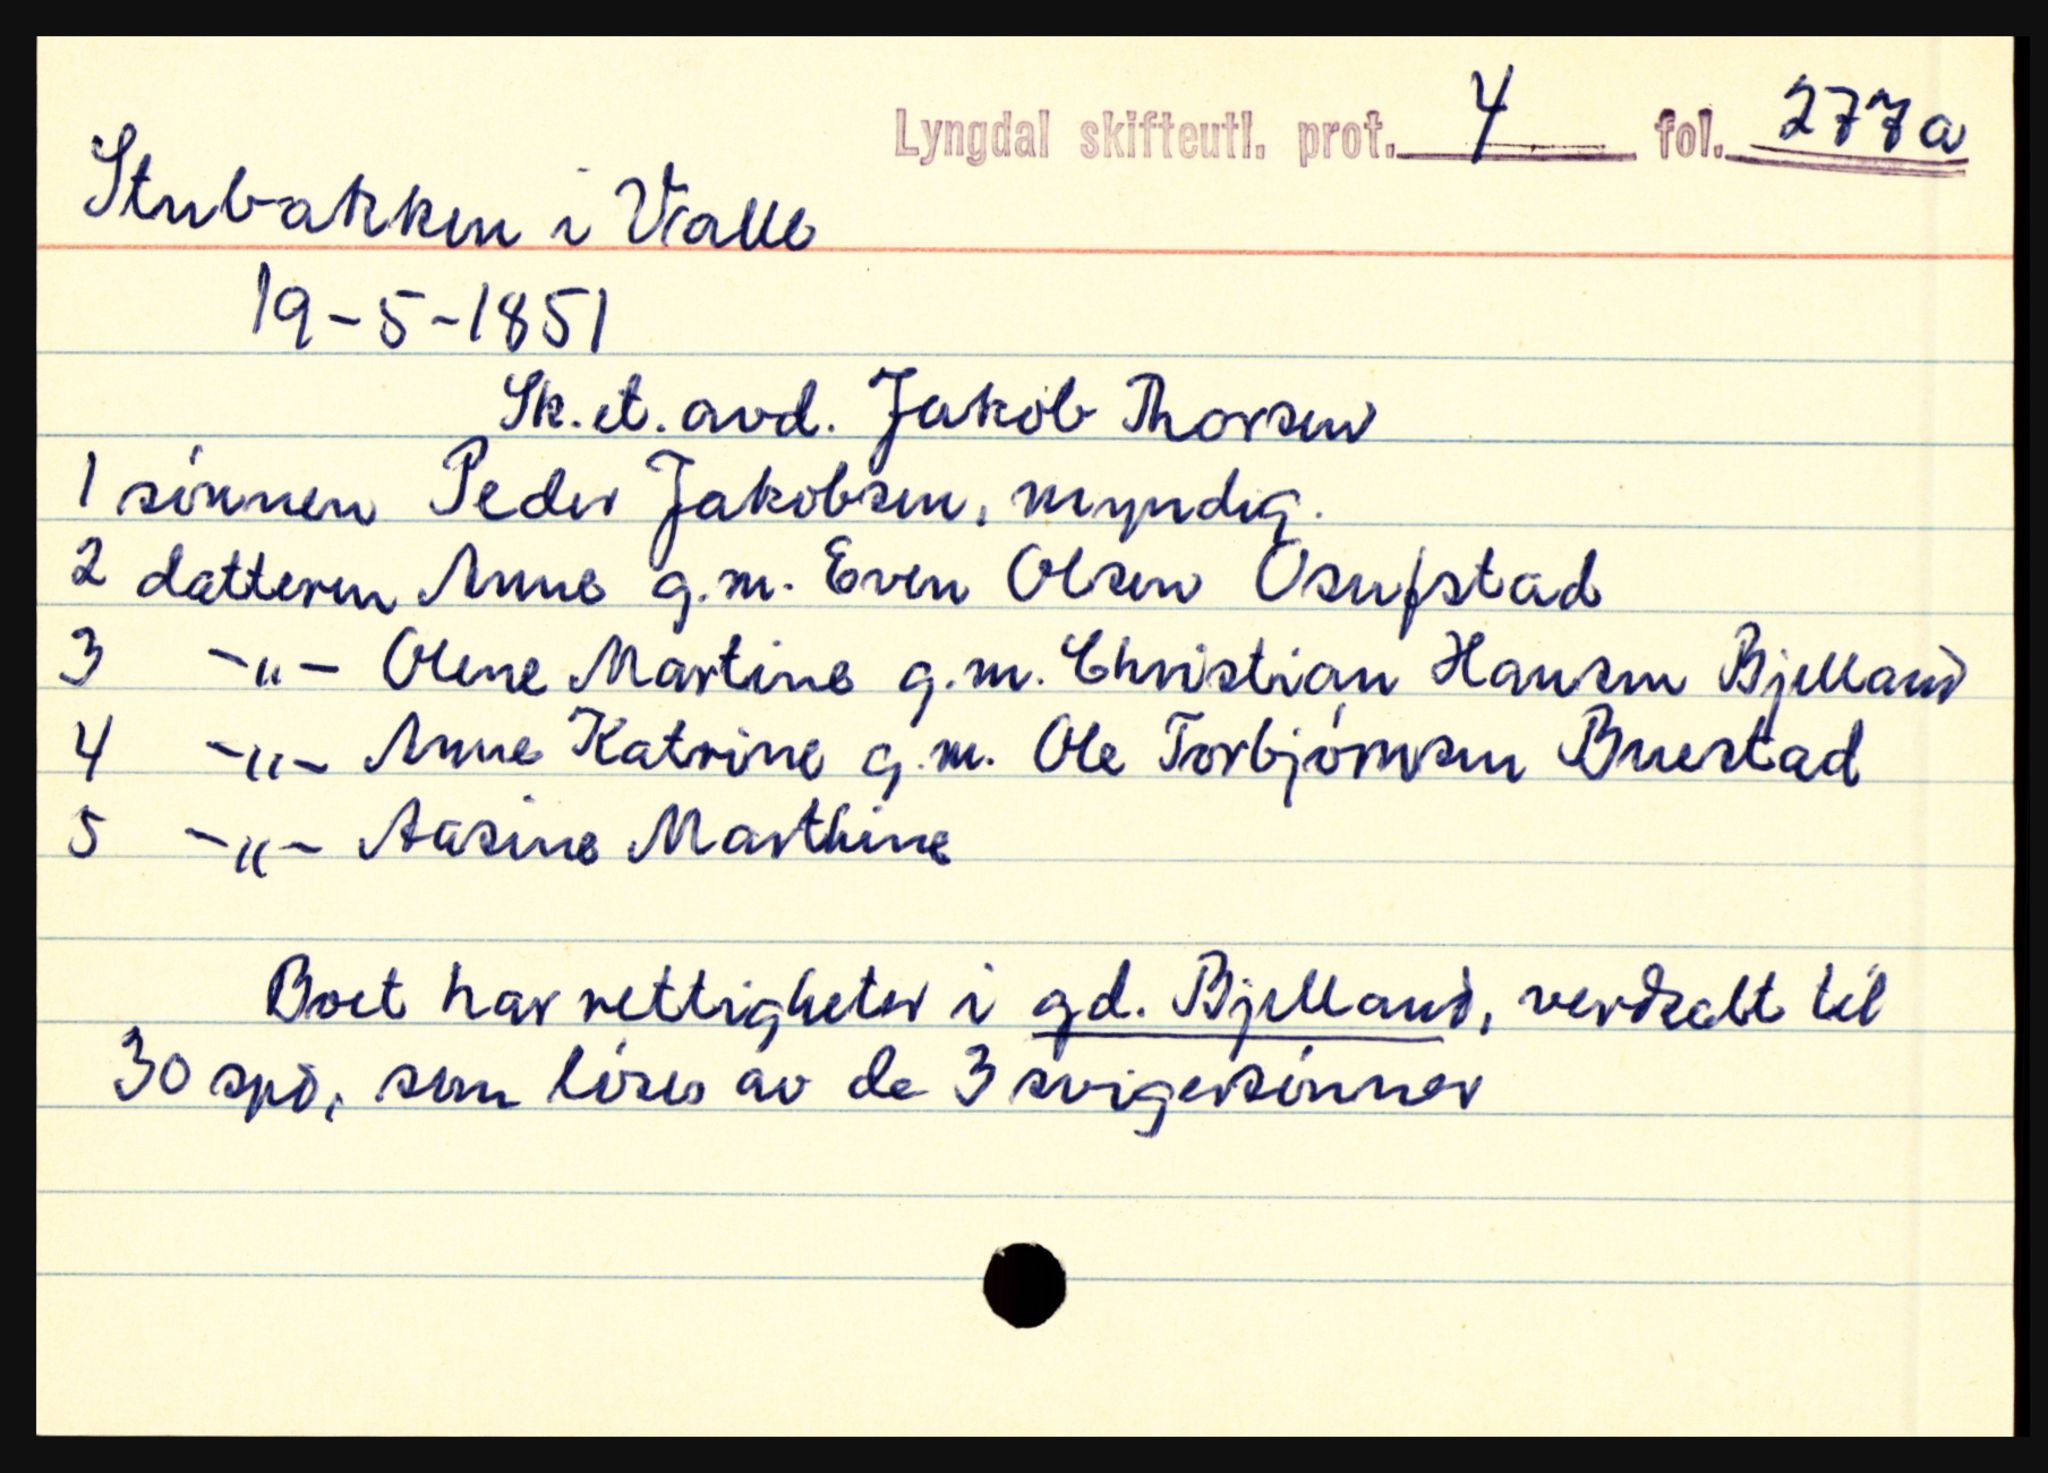 Lyngdal skifteutl. prot. 4 fol. 277a
Stubakken i Valle
19-5-1851
Sk. et. avd. Jakob Thorsen
1 sønnen Peder Jakobsen, myndig.
2 datteren Anne g.m. Even Olsen Osufstad
3 -"- Olene Martine g.m. Christian Hansen Bjelland
4 -"- Anne Katrine g.m. Ole Torbjørnsen Buestad
5 -"- Aasine Marthine
Boet har rettigheter i gd. Bjelland, verdsatt til
30 spd, som løses av de 3 svigersønner